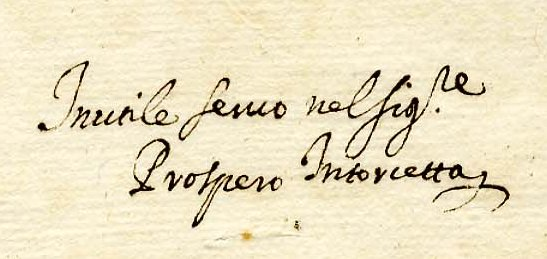 Inutile seruo nel sig.re
Prospero Intorcetta